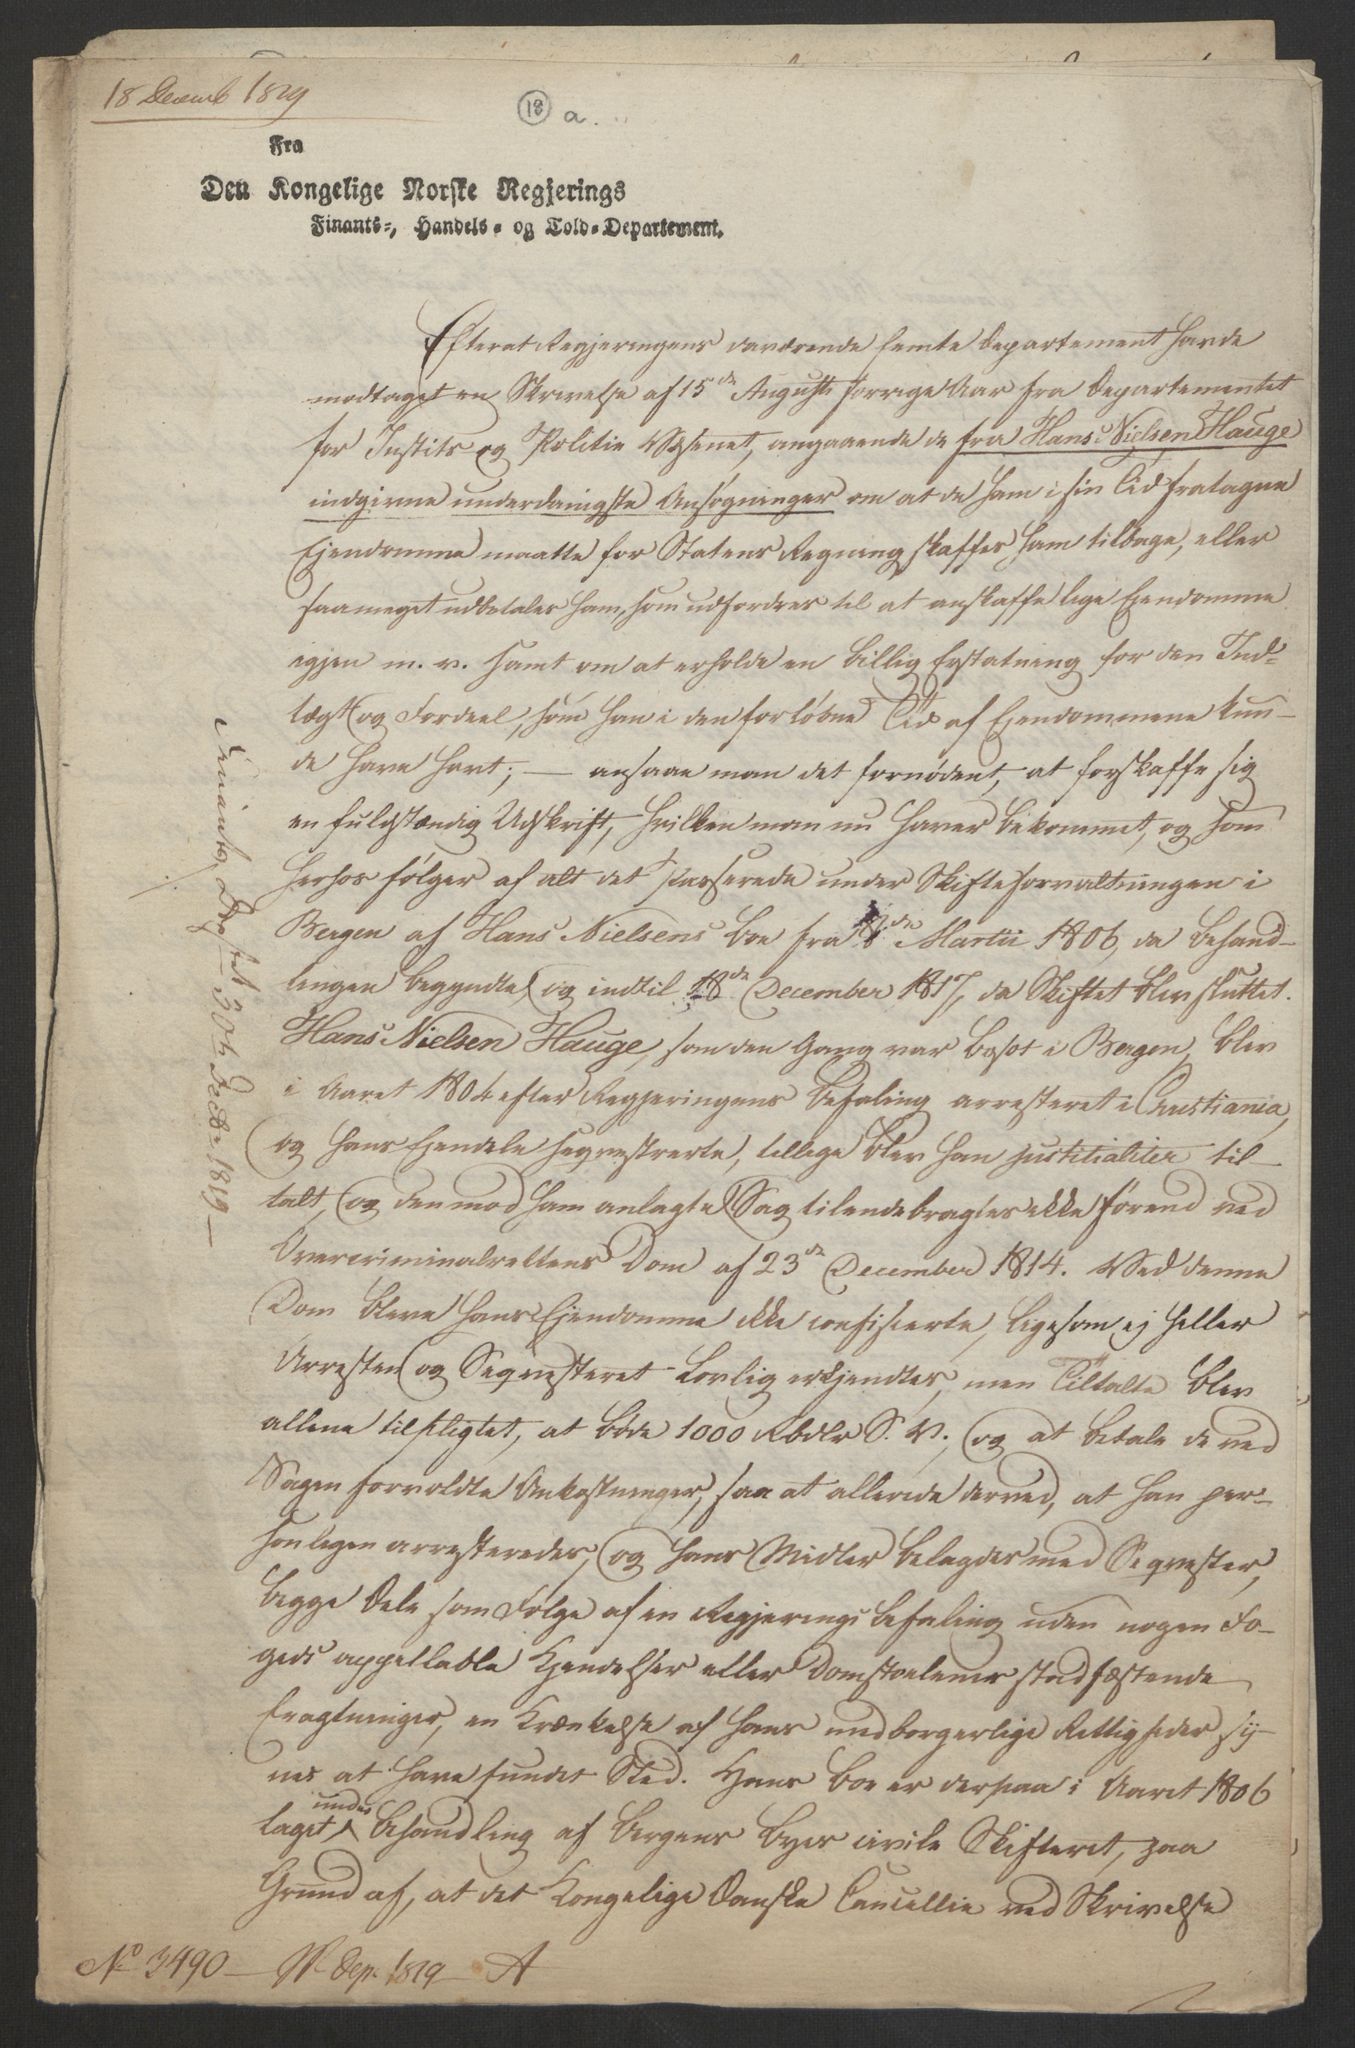 18 Decemb 1819
18 a.
Fra
Den Kongelige Norske Regjerings
Finants-, Handels- og Told-Departement.
Efterat Regjeringens daværende femte Departement havde
modtaget en Skrivelse af 15de Augusti forrige Aar fra Departementet
for Justits og Politie Væsenet, angaaende de fra Hans Nielsen Hauge
indgivne underdanigste Ansøgninger om at de ham i sin Tid fratagne
Ejendomme maatte for Statens Regning skaffes ham tilbage, eller
saameget udbetales ham, som udfordres til at anskaffe lige Ejendomme
igjen m. v. samt om at erholde en billig Erstatning for den Ind-
tægt og Fordeel, som han i den forløbne Tid af Ejendommene kun-
de have havt; — ansaae man det fornødent, at forskaffe sig
en fuldstændig Udskrift, hvilken man nu haver bekommet, og som
herhos følger af alt det passerede under Skifteforvaltningen i
Bergen af Hans Nielsens Boe fra 8de Martii 1806, da Behand-
lingen begyndte og indtil 18de December 1817, da Skiftet blev sluttet.
Hans Nielsen Hauge, som den Gang var bosat i Bergen, blev
i Aaret 1804 efter Regjeringens Befaling arresteret i Christiania,
og hans Ejendele seqvestrerte, tillige blev han justitialiter til-
talt, og den mod ham anlagte Sag tilendebragtes ikke førend ved
Overcriminalrettens Dom af 23de December 1814. Ved denne
Dom bleve hans Ejendomme ikke confiscerte, ligesom ej heller
Arresten og Seqvesteret lovlig erkjendtes, men Tiltalte blev
allene tilpligtet, at bøde 1000 Rbdlr S. V., og at betale de ved
Sagen forvoldte Omkostninger, saa at allerede derved, at han per-
sonligen arresteredes, og hans Midler belagdes med Seqvester,
begge Dele som Følge af en Regjerings Befaling uden nogen Fo-
geds appellable Kjendelser eller Domstolenes stadfæstende
Eragtninger, en Krænkelse af hans medborgerlige Rettigheder sy-
nes at have fundet Sted. Hans Boe er derpaa i Aaret 1806
taget under Behandling af Bergens Byes civile Skifteret, paa
Grund af, at det Kongelige Danske Cancellie ved Skrivelse
Finants Dep. 30te Decbr 1819 —
No 3490 — Dep. 1819 — A